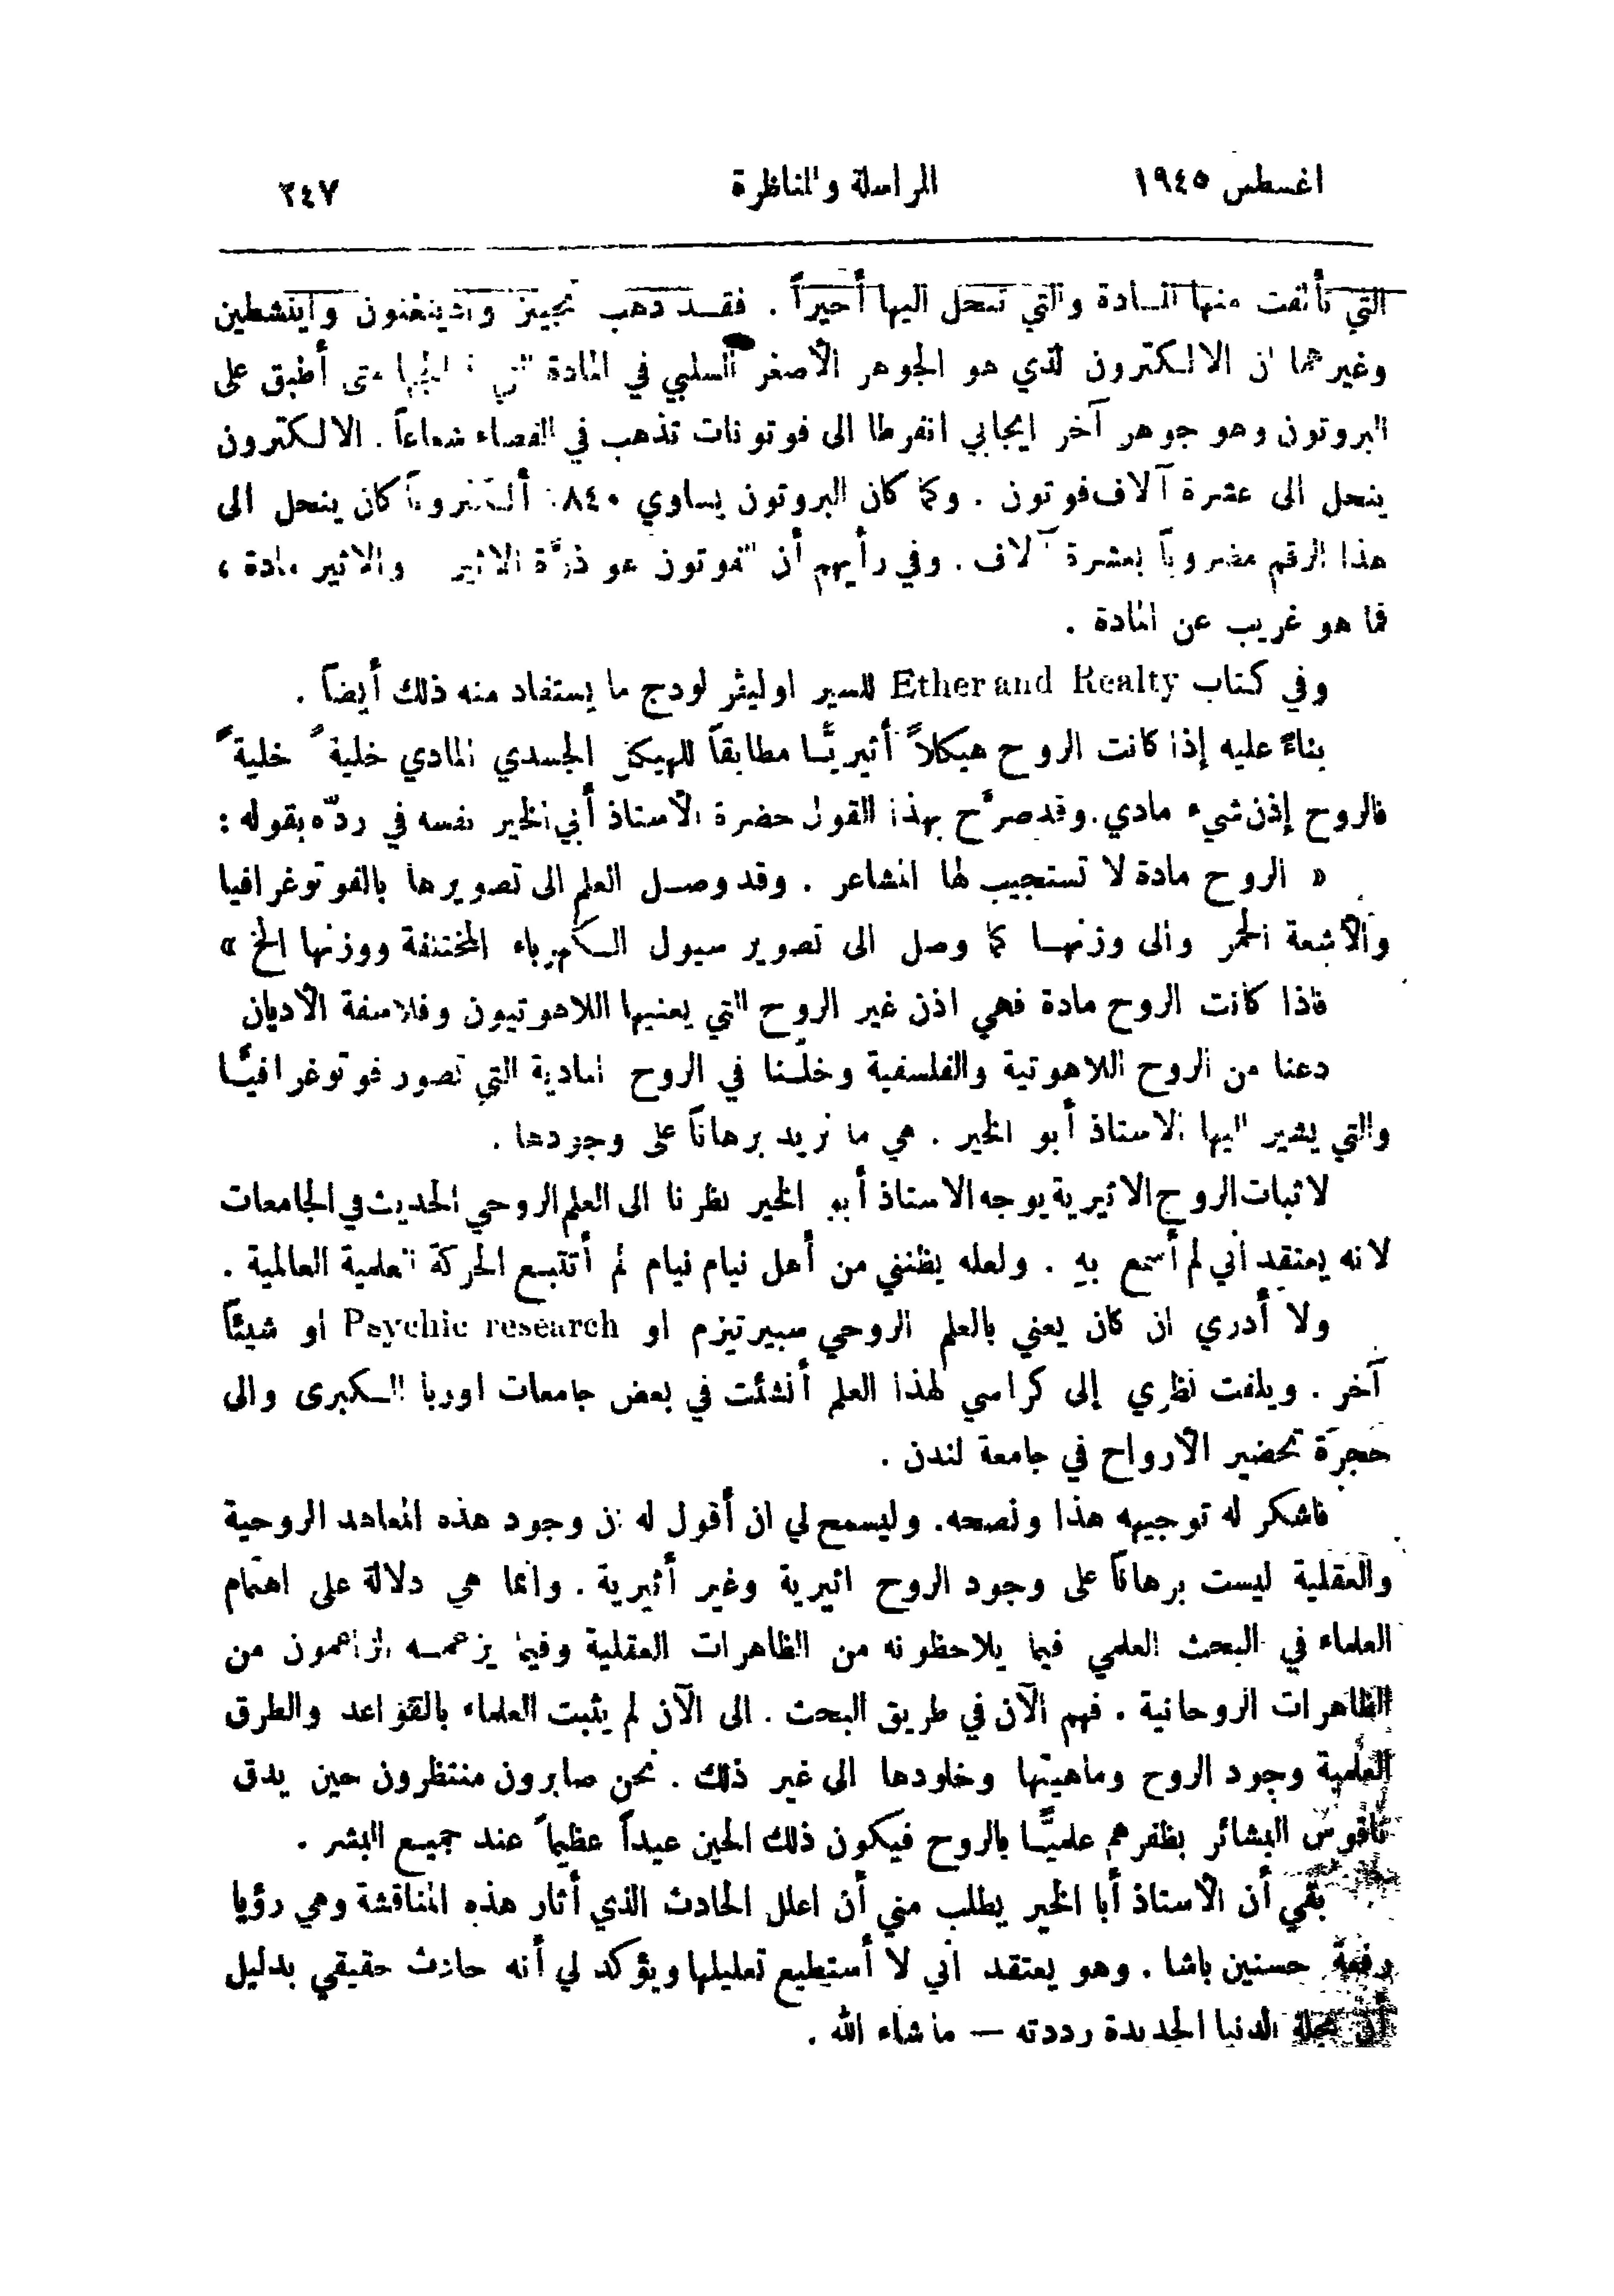 اغسطس ١٩٤٥ المراسلة والمناظرة ٢٤٧
التي تألفت منها المادة والتي تنحل اليها أخيراً . فقد ذهب جينز وادينغتون واينشطين
وغيرهما ان الالكترون الذي هو الجوهر الأصغر السلبي في المادة متى أطبق على
البروتون وهو جوهر آخر ايجابي انفرطا الى فوتونات تذهب في الفضاء شعاعاً . الالكترون
ينحل الى عشرة آلاف فوتون . ولما كان البروتون يساوي ١٨٤٠ ألكتروناً كان ينحل الى
هذا الرقم مضروباً بعشرة آلاف . وفي رأيهم أن الفوتون هو ذرَّة الاثير والاثير مادة ،
فما هو غريب عن المادة .
وفي كتاب Ether and Realty للسير اوليڤر لودج ما يستفاد منه ذلك أيضاً .
بناءً عليه إذا كانت الروح هيكلاً أثيريًّا مطابقاً للهيكل الجسدي المادي خليةً خليةً
فالروح إذن شيء مادي . وقد صرَّح بهذا القول حضرة الأستاذ أبي الخير نفسه في ردّه بقوله :
« الروح مادة لا تستجيب لها المشاعر . وقد وصل العلم الى تصويرها بالفوتوغرافيا
والأشعة الحمر والى وزنها كما وصل الى تصوير سيول الكهرباء المختلفة ووزنها الخ »
فاذا كانت الروح مادة فهي اذن غير الروح التي يعنيها اللاهوتيون وفلاسفة الأديان
دعنا من الروح اللاهوتية والفلسفية وخلّنا في الروح المادية التي تصور فوتوغرافيًّا
والتي يشير اليها الاستاذ أبو الخير . هي ما نريد برهاناً على وجودها .
لاثبات الروح الاثيرية يوجه الاستاذ أبو الخير نظرنا الى العلم الروحي الحديث في الجامعات
لانه يعتقد أني لم أسمع به . ولعله يظنني من أهل نيام نيام لم أتتبع الحركة العلمية العالمية .
ولا أدري ان كان يعني بالعلم الروحي سبيرتيزم او Psychic research او شيئاً
آخر . ويلفت نظري إلى كراسي لهذا العلم أنشئت في بعض جامعات اوربا الكبرى والى
حجرة تحضير الأرواح في جامعة لندن .
فاشكر له توجيهه هذا ونصحه . وليسمح لي ان أقول له ان وجود هذه المعاهد الروحية
والعقلية ليست برهاناً على وجود الروح اثيرية وغير أثيرية . وانما هي دلالة على اهتمام
العلماء في البحث العلمي فيما يلاحظونه من الظاهرات العقلية وفيما يزعمه الزاعمون من
الظاهرات الروحانية . فهم الآن في طريق البحث . الى الآن لم يثبت العلماء بالقواعد والطرق
العلمية وجود الروح وماهيتها وخلودها الى غير ذلك . نحن صابرون منتظرون حين يدق
ناقوس البشائر بظفرهم علميًّا بالروح فيكون ذلك الحين عيداً عظيماً عند جميع البشر .
بقي أن الأستاذ أبا الخير يطلب مني أن اعلل الحادث الذي أثار هذه المناقشة وهي رؤيا
رفعة حسنين باشا . وهو يعتقد اني لا أستطيع تعليلها ويؤكد لي أنه حادث حقيقي بدليل
أن مجلة الدنيا الجديدة رددته — ما شاء الله .